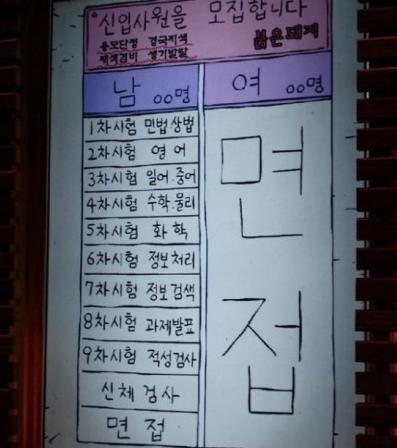 신입사원을 모집합니다
용모단정 경국지색
재색겸비 생기발랄
붉은돼지
남 00명
여 00명
1차시험 민법·상법
2차시험 영어
3차시험 일어·중어
4차시험 수학·물리
5차시험 화학
6차시험 정보처리
7차시험 정보검색
8차시험 과제발표
9차시험 적성검사
신체검사
면접
면접